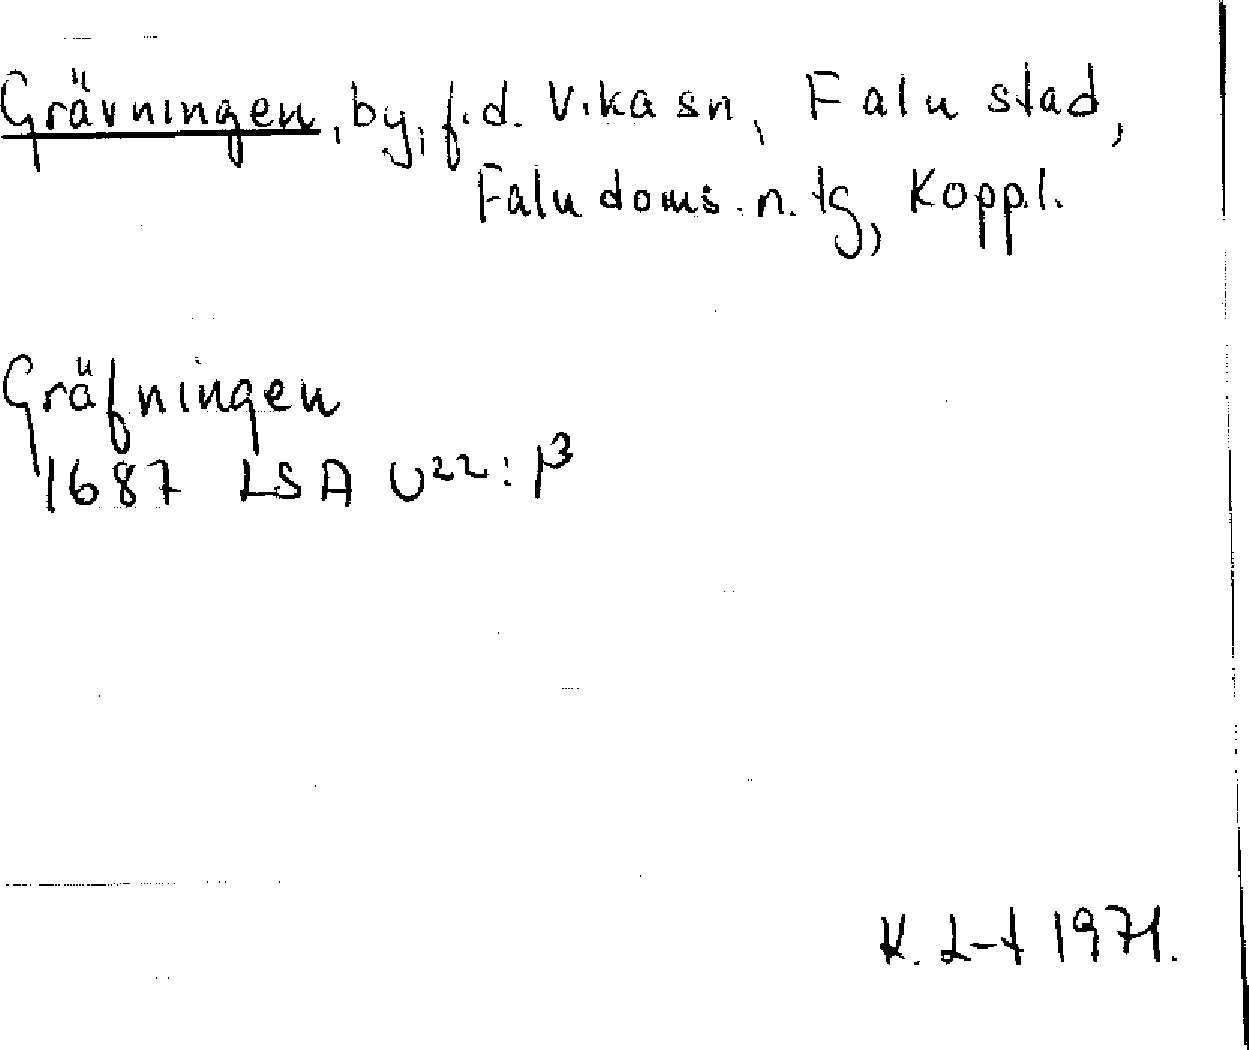 Grävningen, by, f.d. Vika sn, Falu stad,
Falu doms. n. tg, Koppl.
Gräfningen
1687 LSA U22: β
K. L-t 1971.